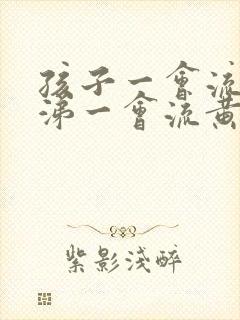 孩子一會流
涕一會流黃
紫影淺醉